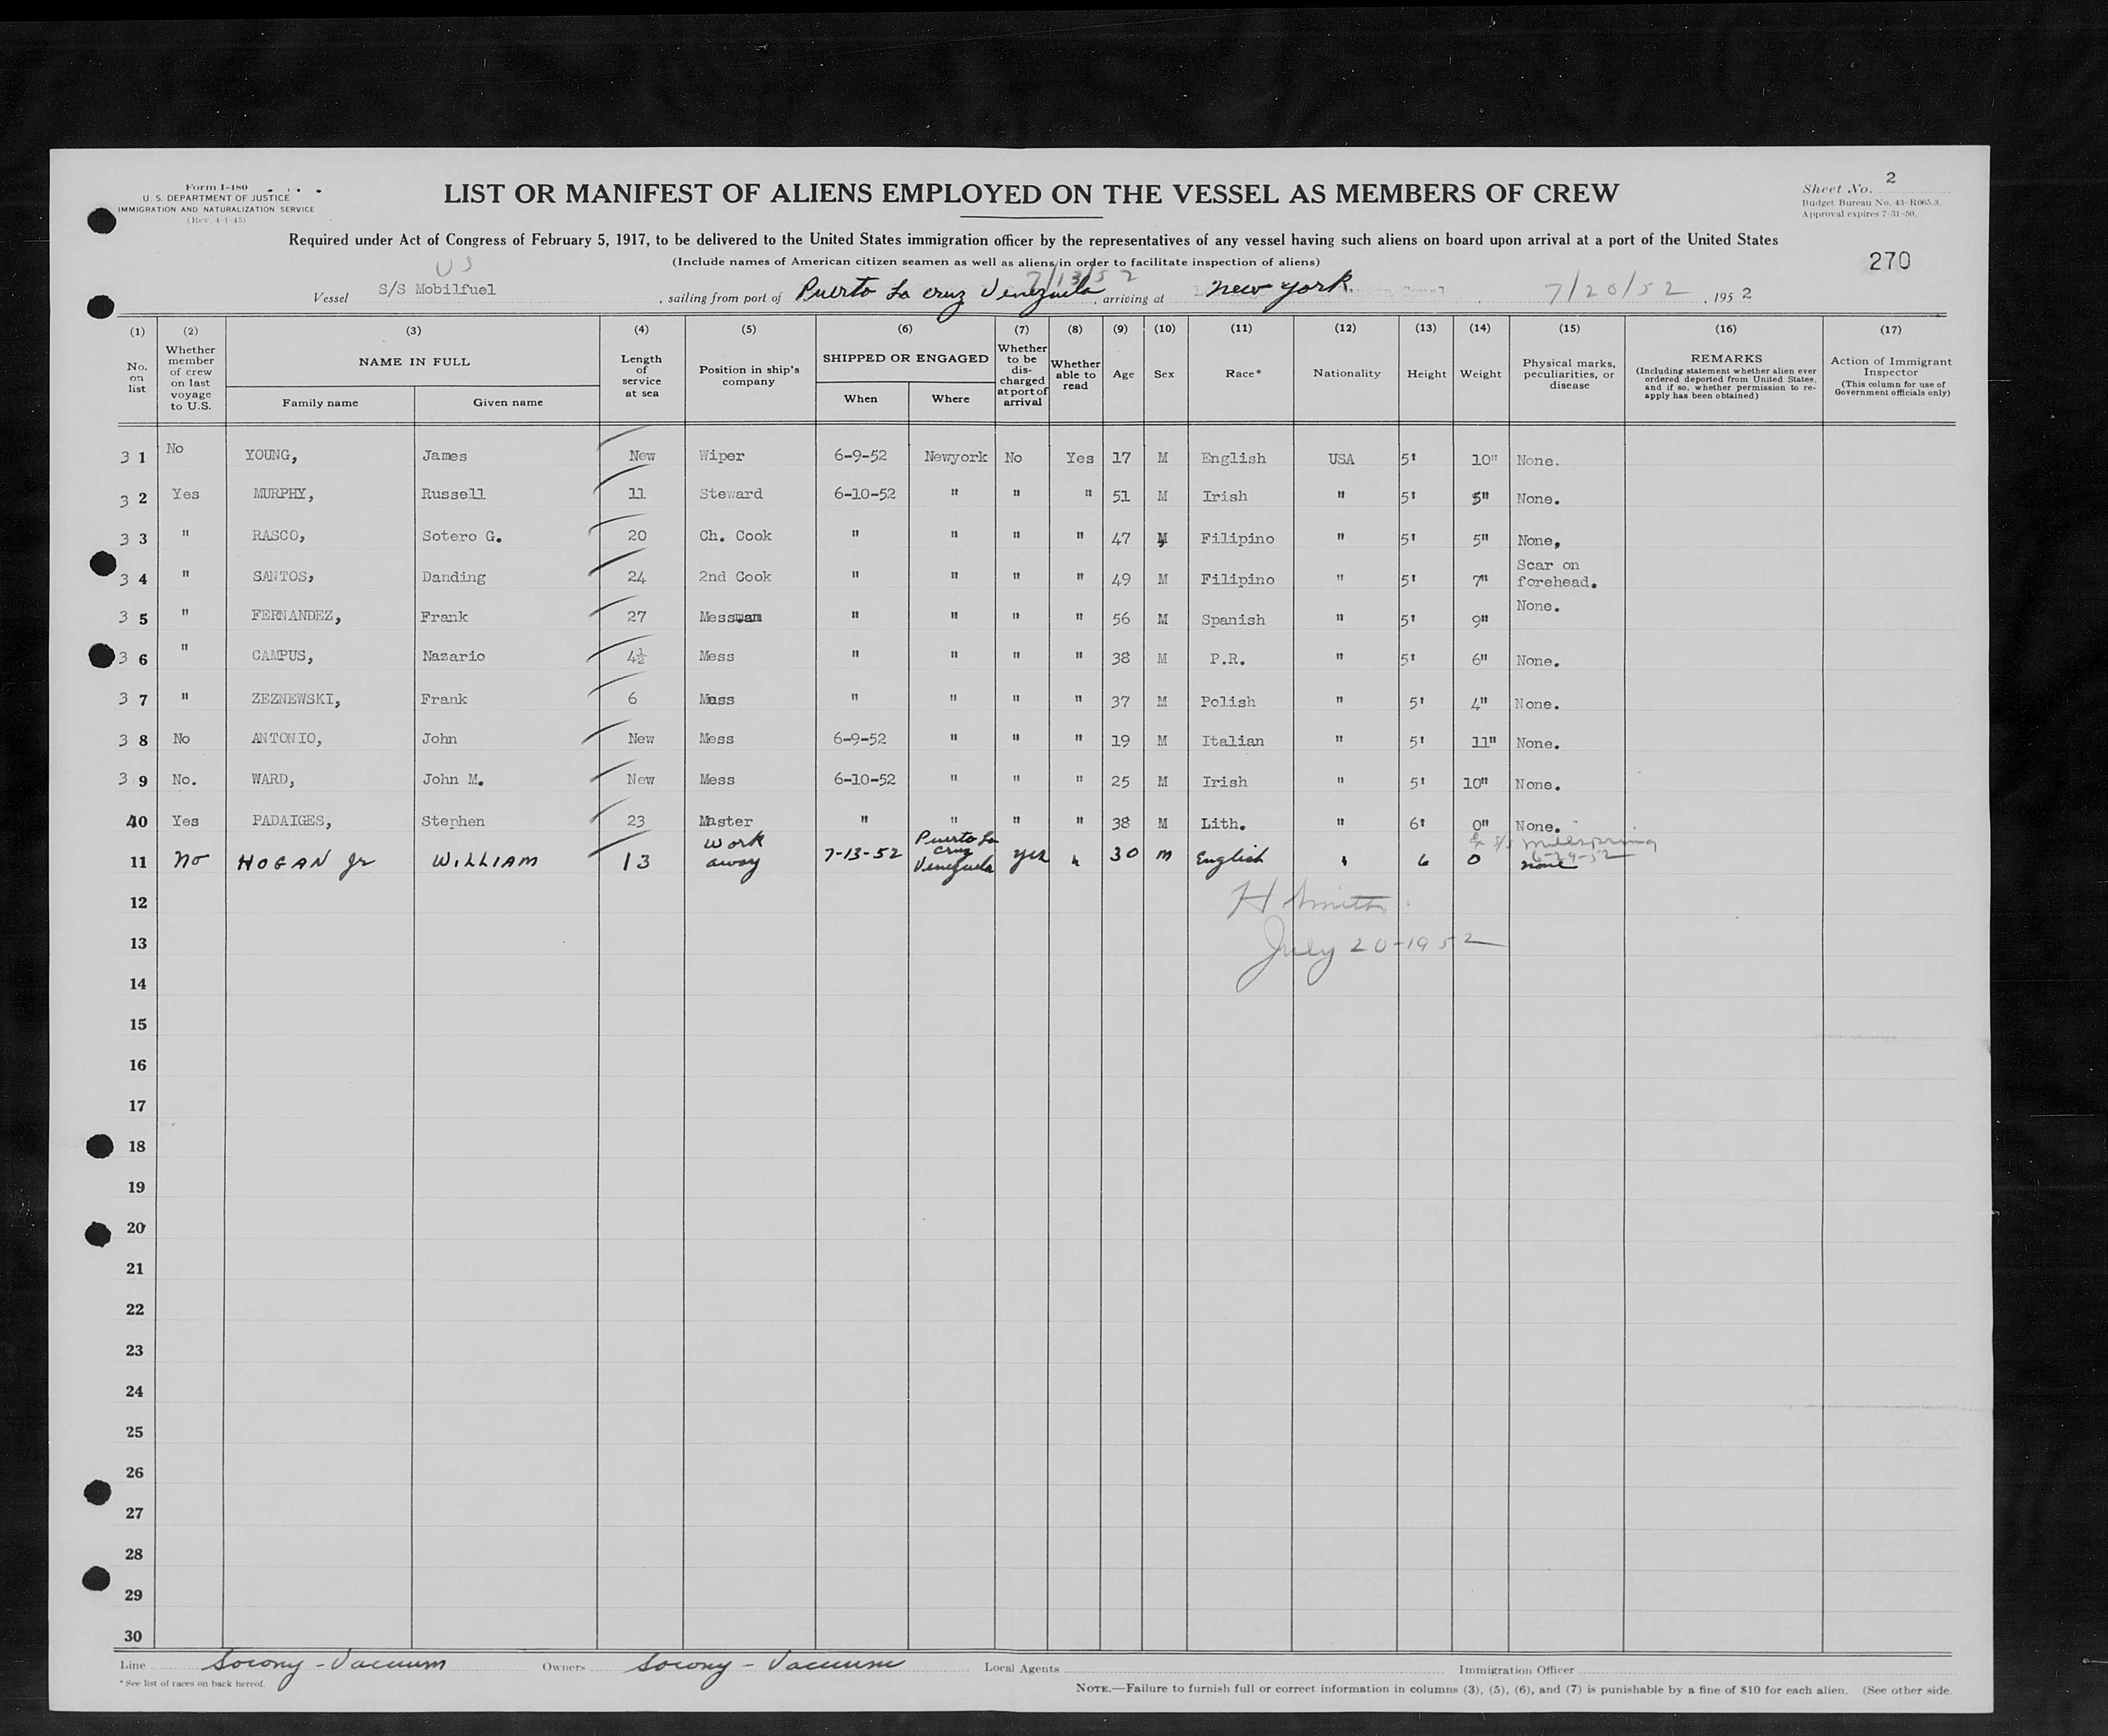 Form I-480
U. S. DEPARTMENT OF JUSTICE
IMMIGRATION AND NATURALIZATION SERVICE
(Rev. 4-1-45)
LIST OR MANIFEST OF ALIENS EMPLOYED ON THE VESSEL AS MEMBERS OF CREW
Sheet No. 2
Budget Bureau No. 43-R065.3.
Approval expires 7-31-50.
Required under Act of Congress of February 5, 1917, to be delivered to the United States immigration officer by the representatives of any vessel having such aliens on board upon arrival at a port of the United States
(Include names of American citizen seamen as well as aliens in order to facilitate inspection of aliens)
270
US
7/13/52
Vessel S/S Mobilfuel , sailing from port of Puerto La cruz Venezuela , arriving at New York 7/20/52 , 1952
(1) (2) (3) (4) (5) (6) (7) (8) (9) (10) (11) (12) (13) (14) (15) (16) (17)
No. on list
Whether member of crew on last voyage to U.S.
NAME IN FULL
Family name Given name
Length of service at sea
Position in ship's company
SHIPPED OR ENGAGED
When Where
Whether to be discharged at port of arrival
Whether able to read
Age
Sex
Race*
Nationality
Height
Weight
Physical marks, peculiarities, or disease
REMARKS
(Including statement whether alien ever ordered deported from United States, and if so, whether permission to re-apply has been obtained)
Action of Immigrant Inspector
(This column for use of Government officials only)
3 1 No YOUNG, James New Wiper 6-9-52 Newyork No Yes 17 M English USA 5' 10" None.
3 2 Yes MURPHY, Russell 11 Steward 6-10-52 " " " 51 M Irish " 5' 5" None.
3 3 " RASCO, Sotero G. 20 Ch. Cook " " " " 47 M Filipino " 5' 5" None,
3 4 " SANTOS, Danding 24 2nd Cook " " " " 49 M Filipino " 5' 7" Scar on forehead.
3 5 " FERNANDEZ, Frank 27 Messman " " " " 56 M Spanish " 5' 9" None.
3 6 " CAMPUS, Nazario 4½ Mess " " " " 38 M P.R. " 5' 6" None.
3 7 " ZEZNEWSKI, Frank 6 Mess " " " " 37 M Polish " 5' 4" None.
3 8 No ANTONIO, John New Mess 6-9-52 " " " 19 M Italian " 5' 11" None.
3 9 No. WARD, John M. New Mess 6-10-52 " " " 25 M Irish " 5' 10" None.
40 Yes PADAIGES, Stephen 23 Master " " " " 38 M Lith. " 6' 0" None.
Ex S/S Millspring
6-29-52
11 No HOGAN Jr WILLIAM 13 Work away 7-13-52 Puerto La Cruz Venezuela Yes " 30 M English " 6 0 none
12
H Smith
13
July 20-1952
14
15
16
17
18
19
20
21
22
23
24
25
26
27
28
29
30
Line Socony-Vacuum Owners Socony-Vacuum Local Agents Immigration Officer
* See list of races on back hereof.
NOTE.—Failure to furnish full or correct information in columns (3), (5), (6), and (7) is punishable by a fine of $10 for each alien. (See other side.